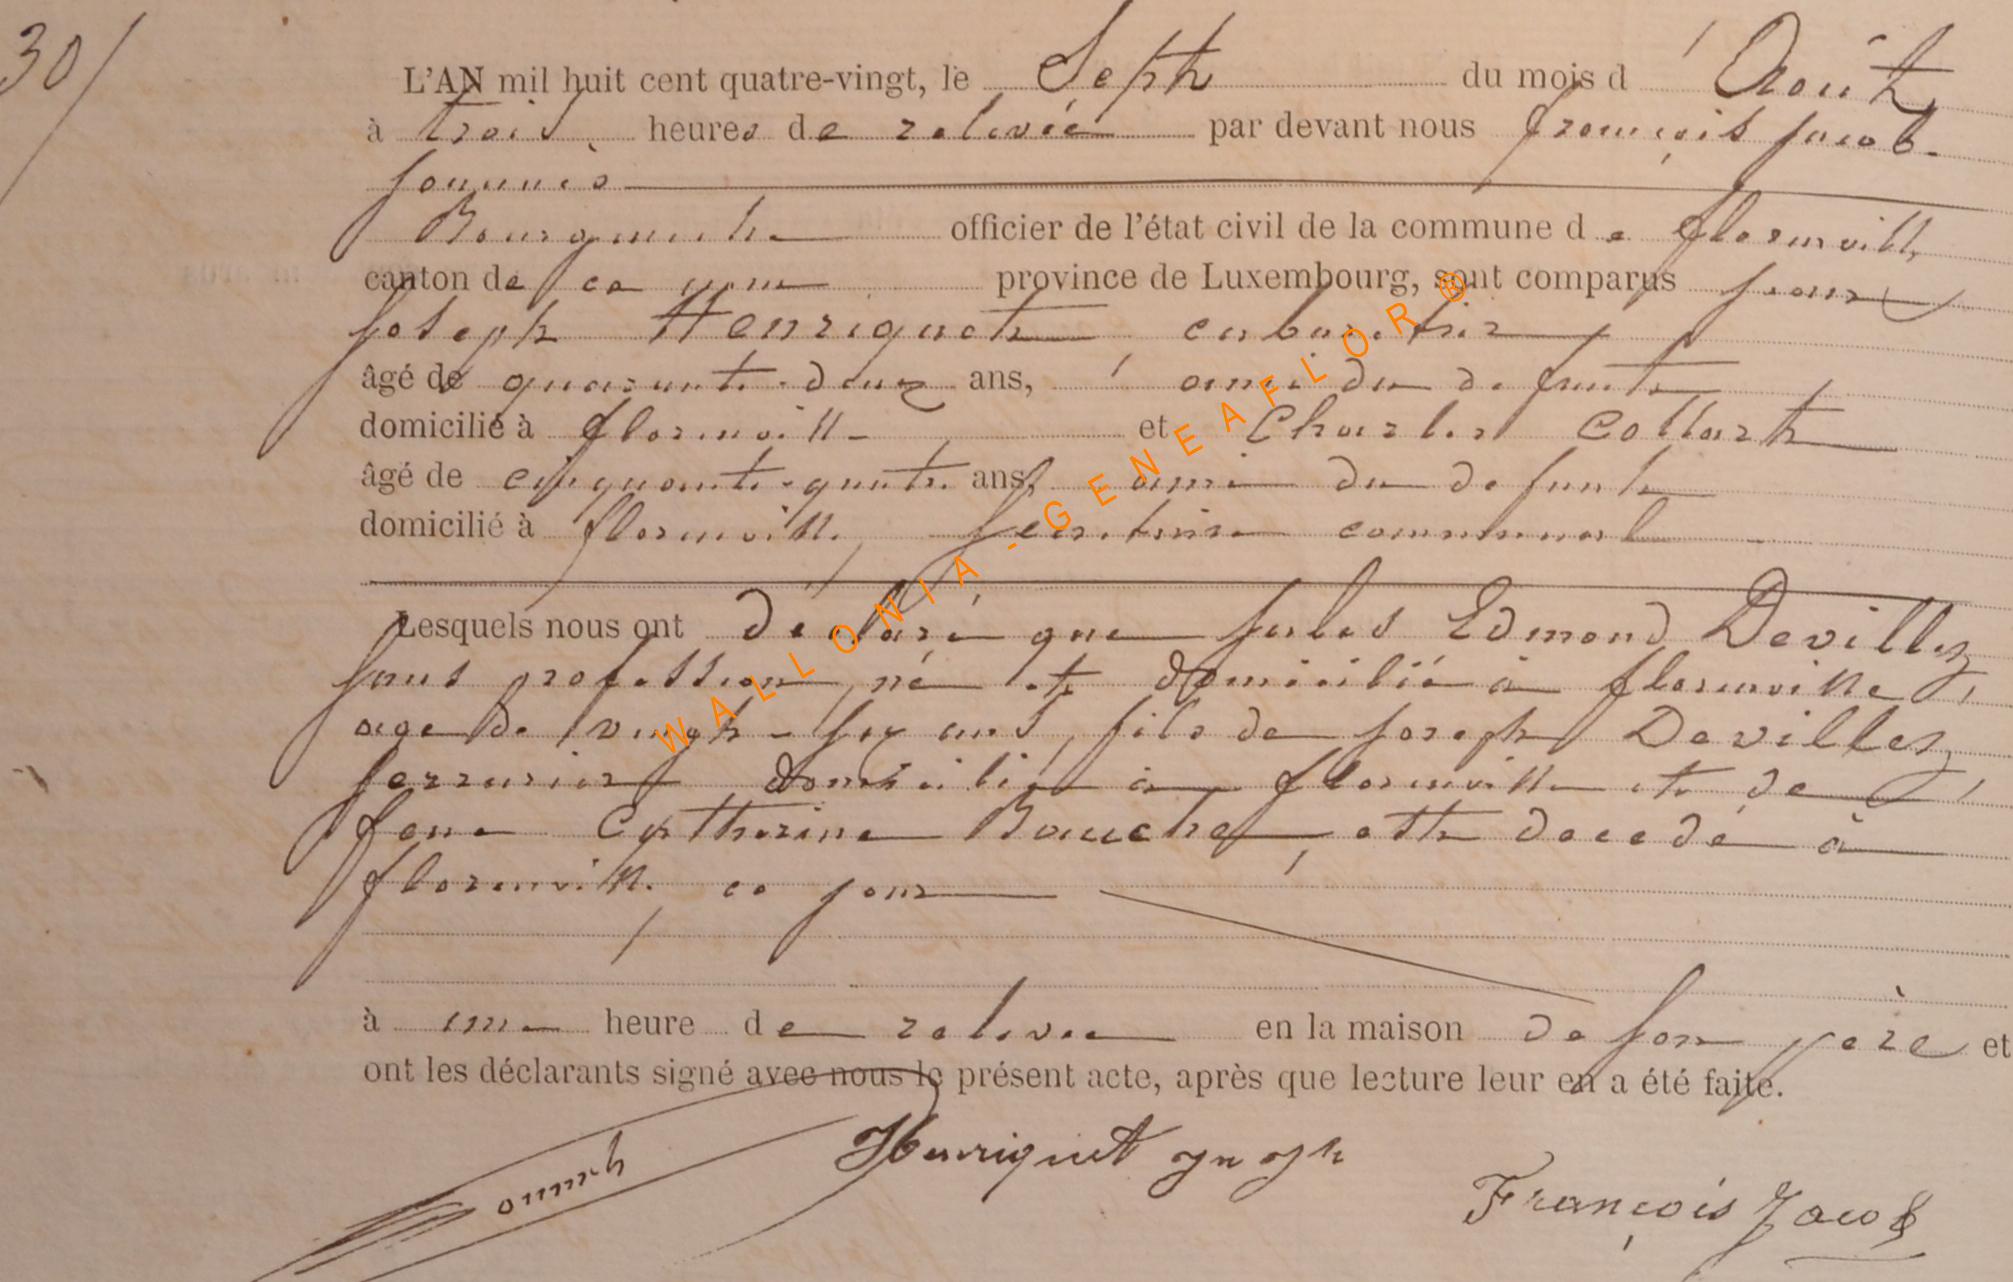 30/
L'AN mil huit cent quatre-vingt, le Sept du mois d' Août
à trois heures de relevée par devant nous françois jacob
Bourgmestre officier de l'état civil de la commune de florenville
canton de ce nom province de Luxembourg, sont comparus jean
joseph Henriquet cabaretier
âgé de quarante-deux ans, ami du defunt
domicilié à florenville et Charles Collart
âgé de cinquante-quatre ans, ami du defunt
domicilié à florenville, Secretaire communal
Lesquels nous ont déclaré que jules Edmond Devillez,
sans profession, né et domicilié à florenville,
age de vingt-six ans, fils de joseph Devillez,
serrurier domicilié à florenville et de
feue Catherine Bauche, est decedé à
florenville, ce jour
à une heure de relevée en la maison de son père et
ont les déclarants signé avec nous le présent acte, après que lecture leur en a été faite.
Henriquet jn jph
François Jacob
WALLONIA - GENEAFLOR®